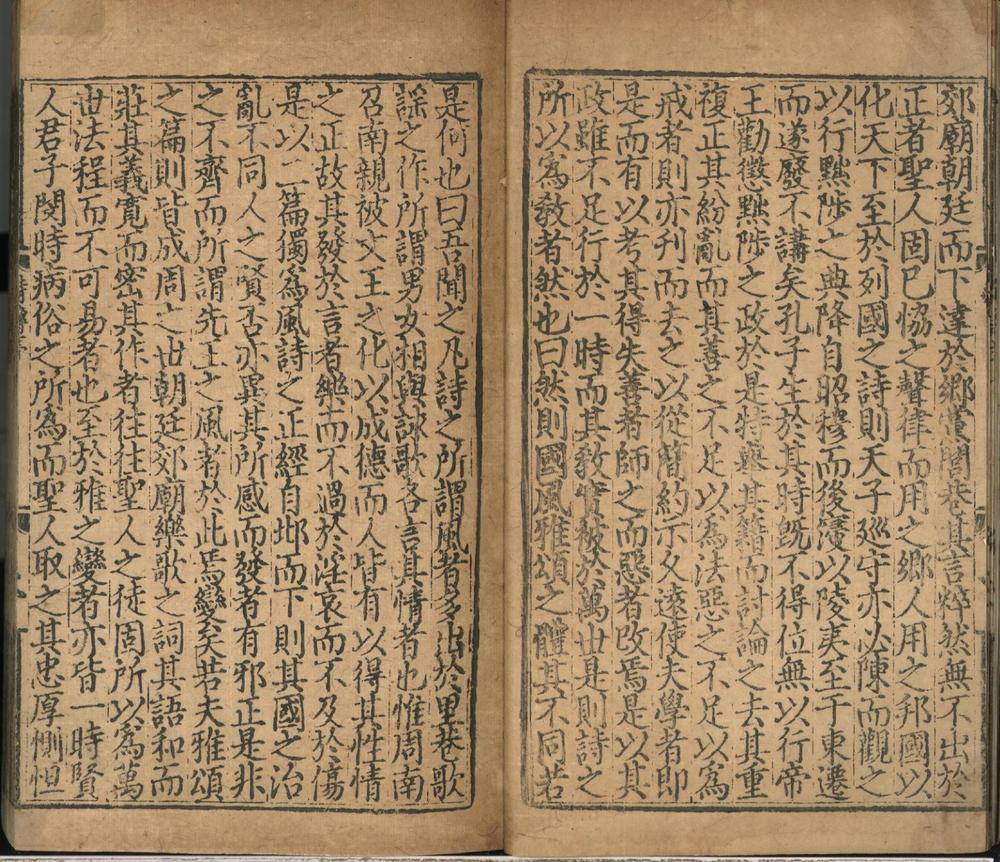 郊廟朝廷而下達於鄉黨閭巷其言粹然無不出於
正者聖人固已恊之聲律而用之鄉人用之邦國以
化天下至於列國之詩則天子廵守亦必陳而觀之
以行黜陟之典降自昭穆而後寖以陵夷至于東遷
而遂廢不講矣孔子生於其時旣不得位無以行帝
王勸懲黜陟之政於是特舉其籍而討論之去其重
複正其紛亂而其善之不足以爲法惡之不足以爲
戒者則亦刋而去之以從簡約示久遠使夫學者即
是而有以考其得失善者師之而惡者改焉是以其
政雖不足行於一時而其敎實被於萬世是則詩之
所以爲敎者然也曰然則國風雅頌之體其不同若
是何也曰吾聞之凡詩之所謂風者多出於里巷歌
謡之作所謂男女相與詠歌各言其情者也惟周南
召南親被文王之化以成德而人皆有以得其性情
之正故其發於言者樂而不過於淫哀而不及於傷
是以二篇獨爲風詩之正經自邶而下則其國之治
亂不同人之賢否亦異其所感而發者有邪正是非
之不齊而所謂先王之風者於此焉變矣若夫雅頌
之篇則皆成周之世朝廷郊廟樂歌之詞其語和而
莊其義寬而密其作者往往聖人之徒固所以爲萬
世法程而不可易者也至於雅之變者亦皆一時賢
人君子閔時病俗之所爲而聖人取之其忠厚惻怛